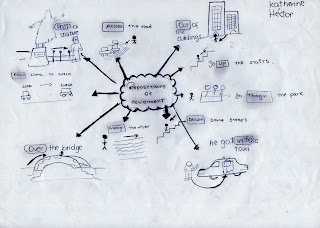 Katherine
Héctor
a statue
Across the road
Out of
the buildings
go up the stairs
From Lima to cusco
Lima
cusco
Prepositions
of
movement
go Through the park
Along the river
Down some steeps
Over the bridge
he got into
Taxi